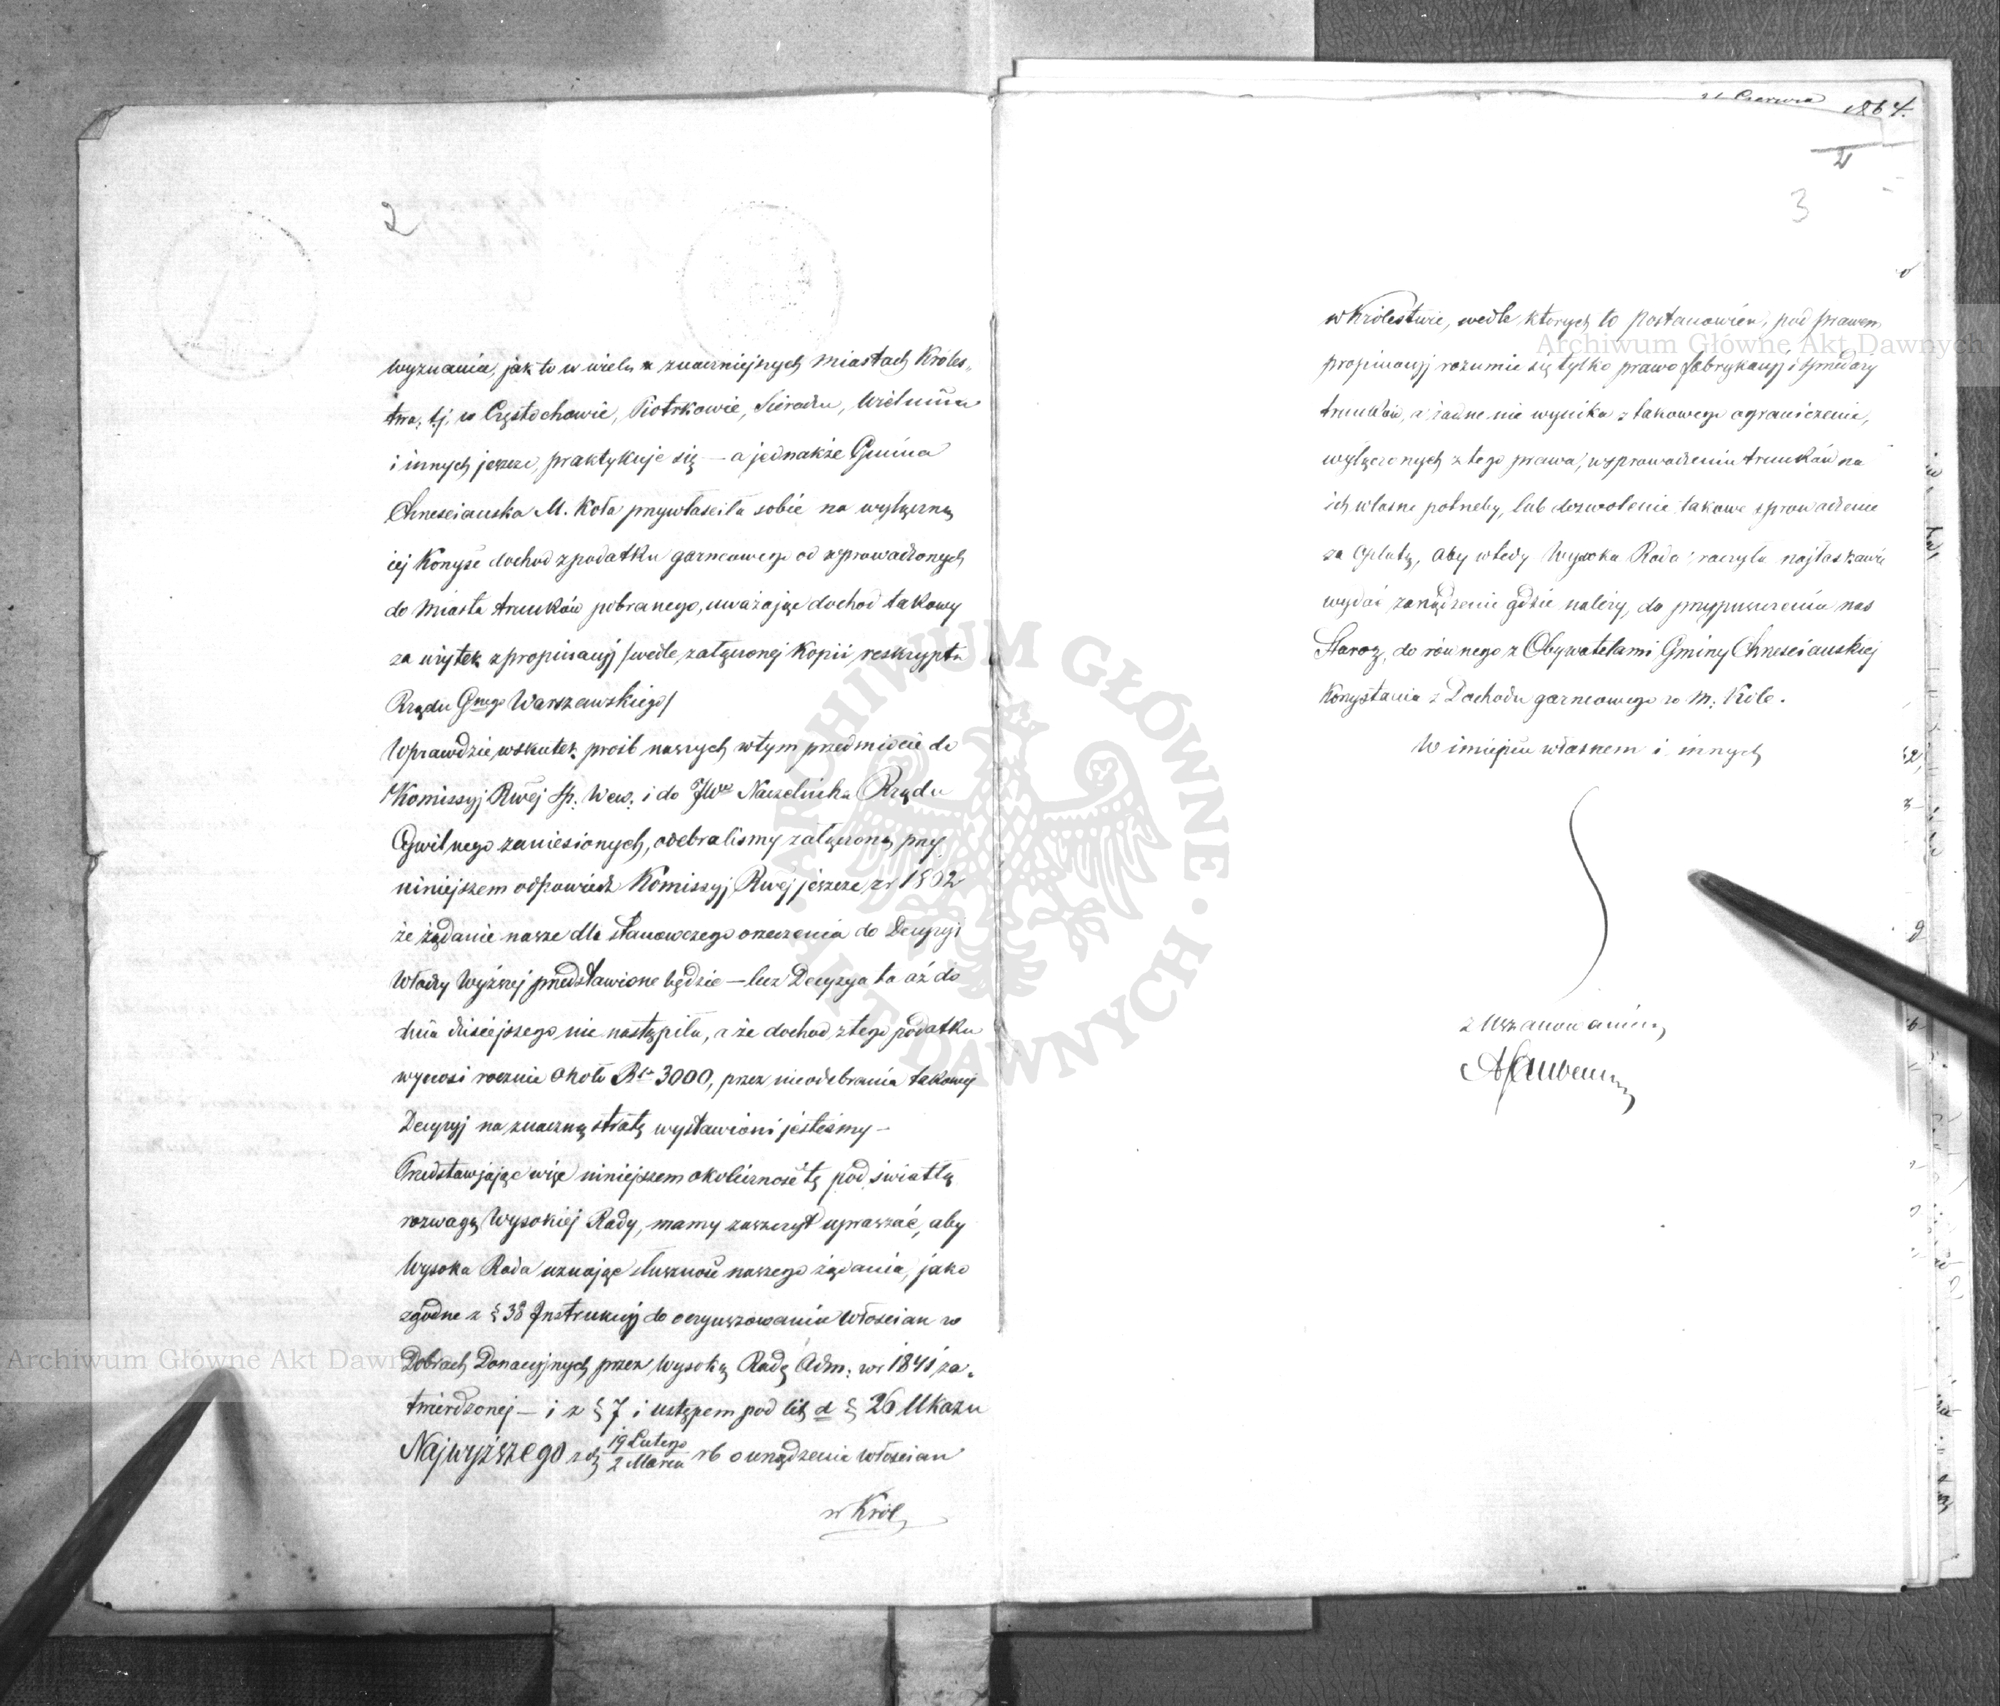 2
wyznania, jak to w wielu znaczniejszych miastach Króles-
twa, tj. w Częstochowie, Piotrkowie, Sieradzu, Wieluniu
i innych jeszcze, praktykuje się — a jednakże Gmina
Chrześciauska M. Koła przywłaściła sobie na wyłączną
jej Korzyść dochod z podatku garncowego od wprowadzonych
do Miasta trunków pobranego, uważając dochod takowy
za użytek z propinacyj /wedle załączonej Kopii reskryptu
Rządu Gnego Warszawskiego/
Wprawdzie wskutek prośb naszych w tym przedmiocie do
Komissyj Rwéj Sp. Wew. i do JWo Naczelnika Rządu
Cywilnego zaniesionych, odebralismy załączoną przy
niniejszem odpowiedź Komissyj Rwéj jeszcze z r 1862
że żądanie nasze dla stanowczego orzeczenia do Decyzyi
Władzy Wyższej przedstawione będzie — lecz Decyzya ta aż do
dnia dzisiejszego nie nastąpiła, a że dochod z tego podatku
wynosi rocznie około Rs 3000, przez nieodebranie takowej
Decyzyj na znaczną stratę wystawioni jesteśmy —
Przedstawjając więc niniejszem okoliczność tę pod światłą
rozwagę Wysokiej Rady, mamy zaszczyt upraszać, aby
Wysoka Rada uznając słuszność naszego żądania, jako
zgodne z § 38 Instrukcyj do oczynszowania Włościan w
Dobrach Donacyjnych przez Wysoką Radę Adm: w r 1841 za-
twierdzonej — i z § 7 i ustępem pod lit d § 26 Ukazu
Najwyższego z d 19 Lutego / 2 Marca rb o urządzeniu Włościan
w Król
21 Czerwca 1864.
2
3
w Królestwie, wedle których to Postanowień, pod prawem
propinacyj rozumie się tylko prawo fabrykacyj i sprzedaży
trunków, a żadne nie wynika z takowego ograniczenie,
wyłączonych z tego prawa, w sprowadzeniu trunków na
ich własne potrzeby, lub dozwolenie takowe sprowadzenie
za opłatą, aby wtedy Wysoka Rada raczyła najłaskawiej
wydać zarządzenie gdzie należy, do przypuszczenia nas
Staroz, do równego z Obywatelami Gminy Chrześciauskiej
Korzystania z Dochodu garncowego w M: Kole.
W imieniu własnem i innych
z Uszanowaniem
Archiwum Główne Akt Dawnych
Archiwum Główne Akt Dawnych
ARCHIWUM GŁÓWNE AKT DAWNYCH